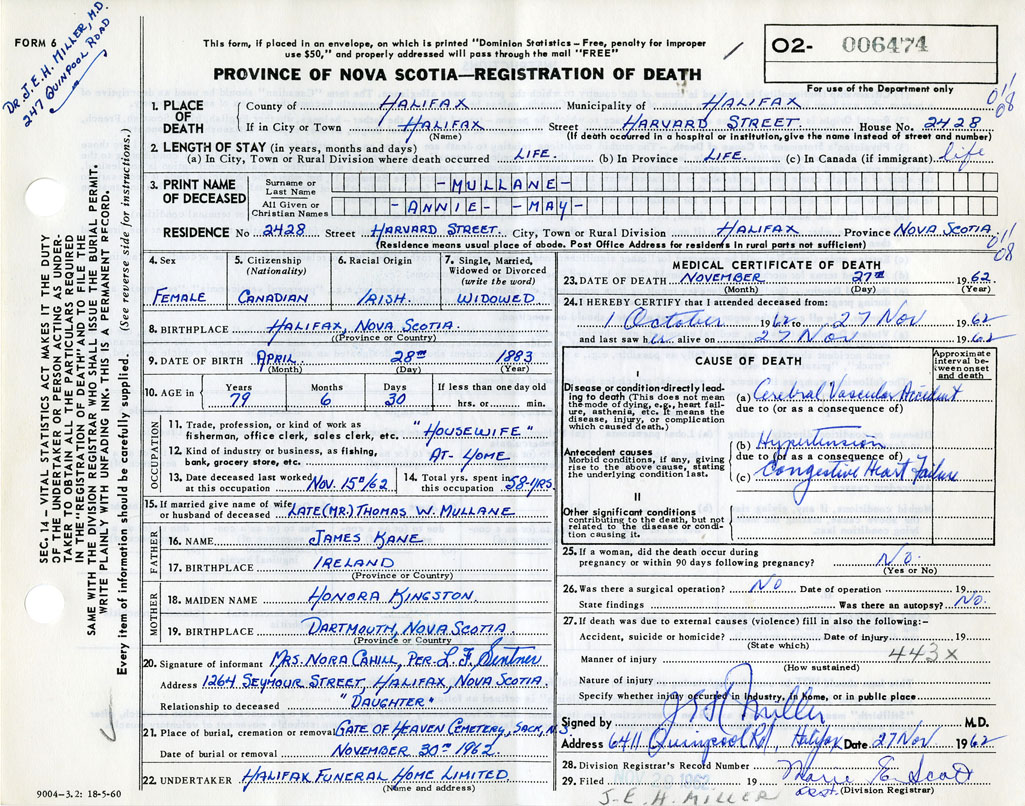 DR. J. E. H. MILLER, M.D.
247 QUINPOOL ROAD
FORM 6
This form, if placed in an envelope, on which is printed "Dominion Statistics – Free, penalty for improper
use $50," and properly addressed will pass through the mail "FREE"
PROVINCE OF NOVA SCOTIA—REGISTRATION OF DEATH
O2- 006474
For use of the Department only
SEC. 14 – VITAL STATISTICS ACT MAKES IT THE DUTY
OF THE UNDERTAKER OR PERSON ACTING AS UNDER-
TAKER TO OBTAIN ALL THE PARTICULARS REQUIRED
IN THE "REGISTRATION OF DEATH" AND TO FILE THE
SAME WITH THE DIVISION REGISTRAR WHO SHALL ISSUE THE BURIAL PERMIT.
WRITE PLAINLY WITH UNFADING INK. THIS IS A PERMANENT RECORD.
Every item of information should be carefully supplied. (See reverse side for instructions.)
1. PLACE OF DEATH
County of HALIFAX Municipality of HALIFAX
011
08
If in City or Town HALIFAX Street HARVARD STREET. House No. 2428
(Name) (If death occurred in a hospital or institution, give the name instead of street and number)
2. LENGTH OF STAY (in years, months and days)
(a) In City, Town or Rural Division where death occurred LIFE. (b) In Province LIFE. (c) In Canada (if immigrant) life
3. PRINT NAME OF DECEASED
Surname or Last Name -MULLANE-
All Given or Christian Names -ANNIE- -MAY-
RESIDENCE No 2428 Street HARVARD STREET. City, Town or Rural Division HALIFAX Province NOVA SCOTIA.
(Residence means usual place of abode. Post Office Address for residents in rural parts not sufficient)
011
08
4. Sex
FEMALE
5. Citizenship
(Nationality)
CANADIAN
6. Racial Origin
IRISH.
7. Single, Married,
Widowed or Divorced
(write the word)
WIDOWED
8. BIRTHPLACE HALIFAX, NOVA SCOTIA.
(Province or Country)
9. DATE OF BIRTH APRIL 28TH 1883
(Month) (Day) (Year)
10. AGE in
Years 79
Months 6
Days 30
If less than one day old
hrs. or min.
OCCUPATION
11. Trade, profession, or kind of work as
fisherman, office clerk, sales clerk, etc. "HOUSEWIFE"
12. Kind of industry or business, as fishing,
bank, grocery store, etc. AT-HOME
13. Date deceased last worked
at this occupation NOV. 15TH/62
14. Total yrs. spent in
this occupation 58-YRS.
15. If married give name of wife
or husband of deceased LATE (MR.) THOMAS W. MULLANE
FATHER
16. NAME JAMES KANE
17. BIRTHPLACE IRELAND
(Province or Country)
MOTHER
18. MAIDEN NAME HONORA KINGSTON.
19. BIRTHPLACE DARTMOUTH, NOVA SCOTIA.
(Province or Country)
20. Signature of informant MRS. NORA CAHILL, PER. L. F.
Address 1264 SEYMOUR STREET, HALIFAX, NOVA SCOTIA.
Relationship to deceased "DAUGHTER"
21. Place of burial, cremation or removal GATE OF HEAVEN CEMETERY, SACK, N.S.
Date of burial or removal NOVEMBER 30TH 1962.
22. UNDERTAKER HALIFAX FUNERAL HOME LIMITED.
(Name and address)
9004-3.2: 18-5-60
MEDICAL CERTIFICATE OF DEATH
23. DATE OF DEATH NOVEMBER 27TH 1962
(Month) (Day) (Year)
24. I HEREBY CERTIFY that I attended deceased from:
1 October 1962 to 27 Nov 1962
and last saw her alive on 27 Nov 1962
CAUSE OF DEATH
Approximate
interval be-
tween onset
and death
I
Disease or condition directly lead-
ing to death (This does not mean
the mode of dying, e.g., heart fail-
ure, asthenia, etc. It means the
disease, injury, or complication
which caused death.)
(a) Cerebral Vascular Accident
due to (or as a consequence of)
Antecedent causes
Morbid conditions, if any, giving
rise to the above cause, stating
the underlying condition last.
(b) Hypertension
due to (or as a consequence of)
(c) Congestive Heart Failure
II
Other significant conditions
contributing to the death, but not
related to the disease or condi-
tion causing it.
25. If a woman, did the death occur during
pregnancy or within 90 days following pregnancy? No.
(Yes or No)
26. Was there a surgical operation? NO Date of operation 19
State findings Was there an autopsy? NO.
27. If death was due to external causes (violence) fill in also the following:-
Accident, suicide or homicide? Date of injury 19
(State which)
443X
Manner of injury
(How sustained)
Nature of injury
Specify whether injury occurred in industry, in home, or in public place
Signed by J E H Miller M.D.
Address 6411 Quinpool Rd, Halifax Date 27 Nov 1962
28. Division Registrar's Record Number
29. Filed NOV 30 1962 19 Marie E. Scott
(Division Registrar)
J-E. H. MILLER